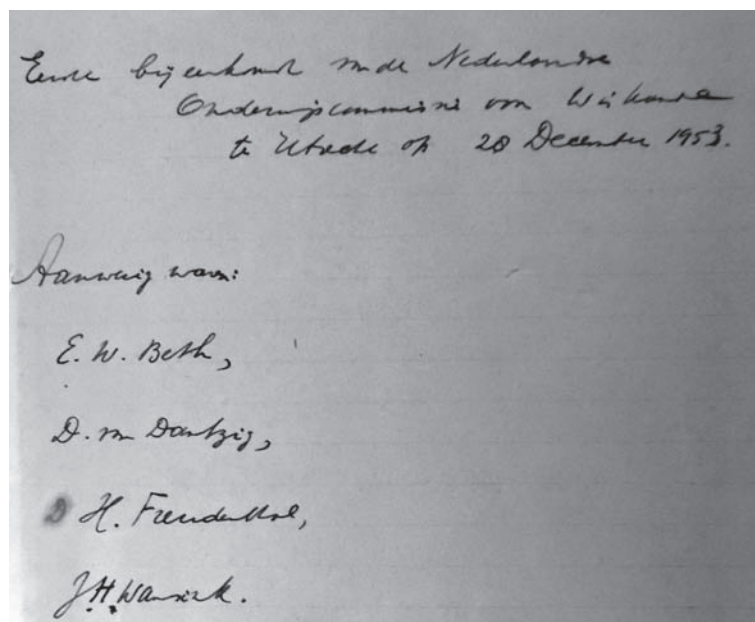 Eerste bijeenkomst van de Nederlandse
Onderwijscommissie voor Wiskunde
te Utrecht op 28 December 1953.
Aanwezig waren:
E. W. Beth,
D. van Dantzig,
H. Freudenthal,
J. H. Wansink.